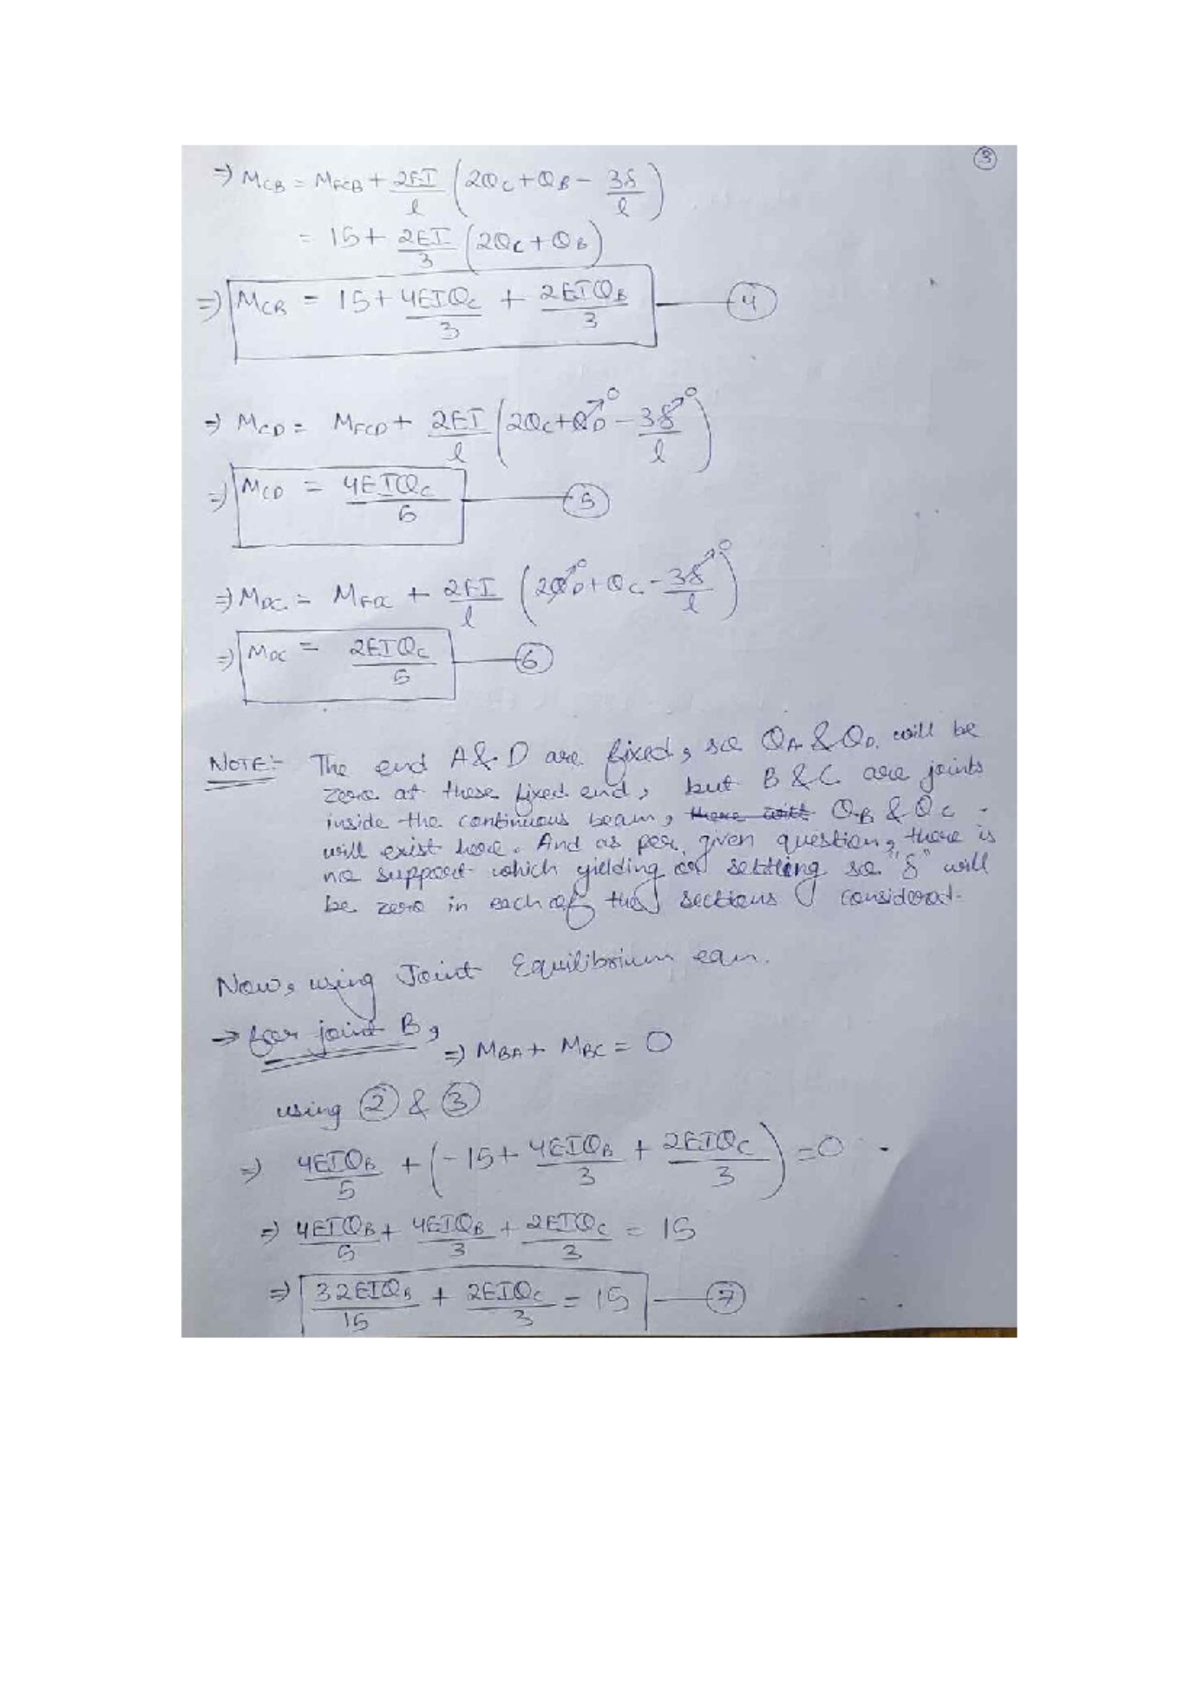 3
⇒ MCB = MFCB + 2EI/l (2θC + θB − 3δ/l)
= 15 + 2EI/3 (2θC + θB)
⇒ MCB = 15 + 4EIθC/3 + 2EIθB/3 — 4
⇒ MCD = MFCD + 2EI/l (2θC + θD→0 − 3δ→0/l)
⇒ MCD = 4EIθC/5 — 5
⇒ MDC = MFDC + 2EI/l (2θD→0 + θC − 3δ→0/l)
⇒ MDC = 2EIθC/5 — 6
NOTE:- The end A & D are fixed, so θA & θD will be
zero at these fixed end, but B & C are joints
inside the continuous beam, there will θB & θC
will exist here. And as per given question, there is
no support which yielding or settling so "δ" will
be zero in each of the sections considerat.
Now, using Joint Equilibrium eqn.
→ for joint B,
⇒ MBA + MBC = 0
using 2 & 3
⇒ 4EIθB/5 + (−15 + 4EIθB/3 + 2EIθC/3) = 0
⇒ 4EIθB/5 + 4EIθB/3 + 2EIθC/3 = 15
⇒ 32EIθB/15 + 2EIθC/3 = 15 — 7